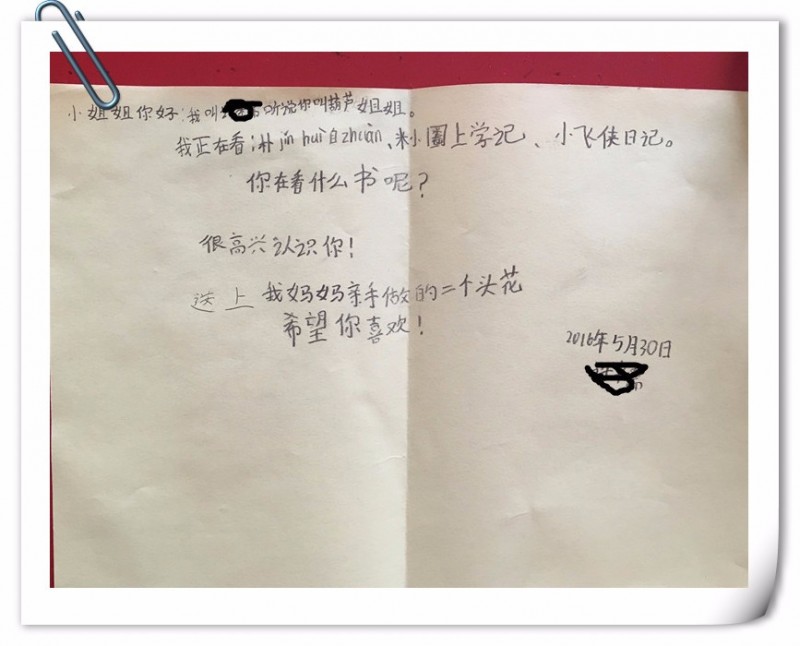 小姐姐你好:我叫 听说你叫葫芦姐姐。
我正在看:朴jǐn huì自zhuàn、米小圈上学记、小飞侠日记。
你在看什么书呢?
很高兴认识你!
送上 我妈妈亲手做的二个头花
希望你喜欢!
2016年5月30日